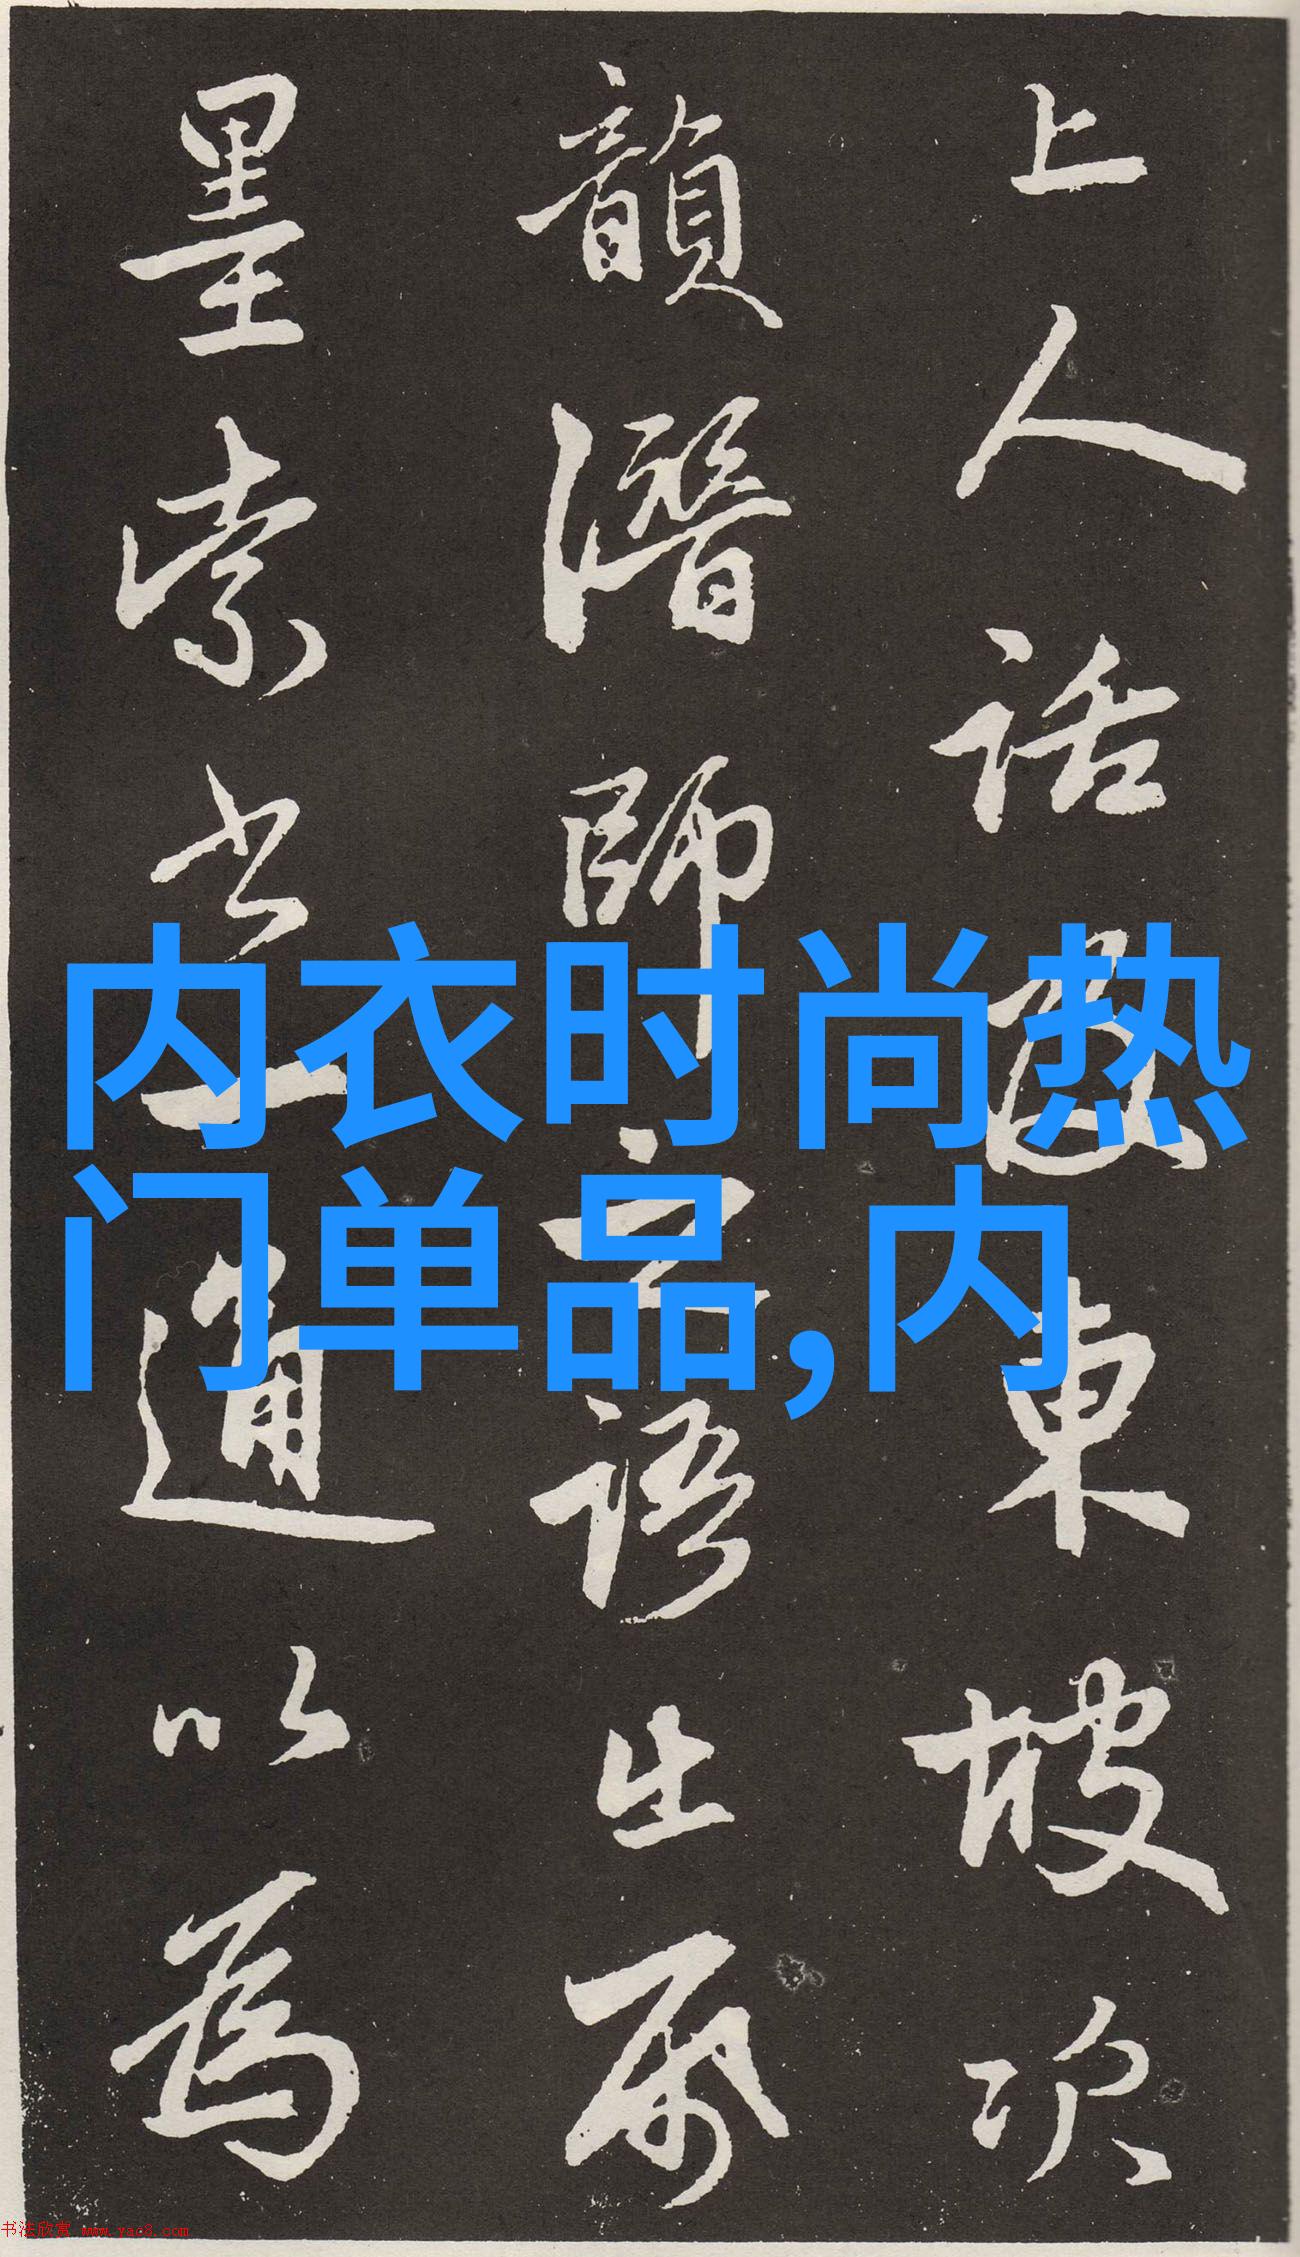 上人話東坡次
韻潛師語
墨索書一通以為
内衣时尚热
门单品,内
书法欣赏 www.yac8.com